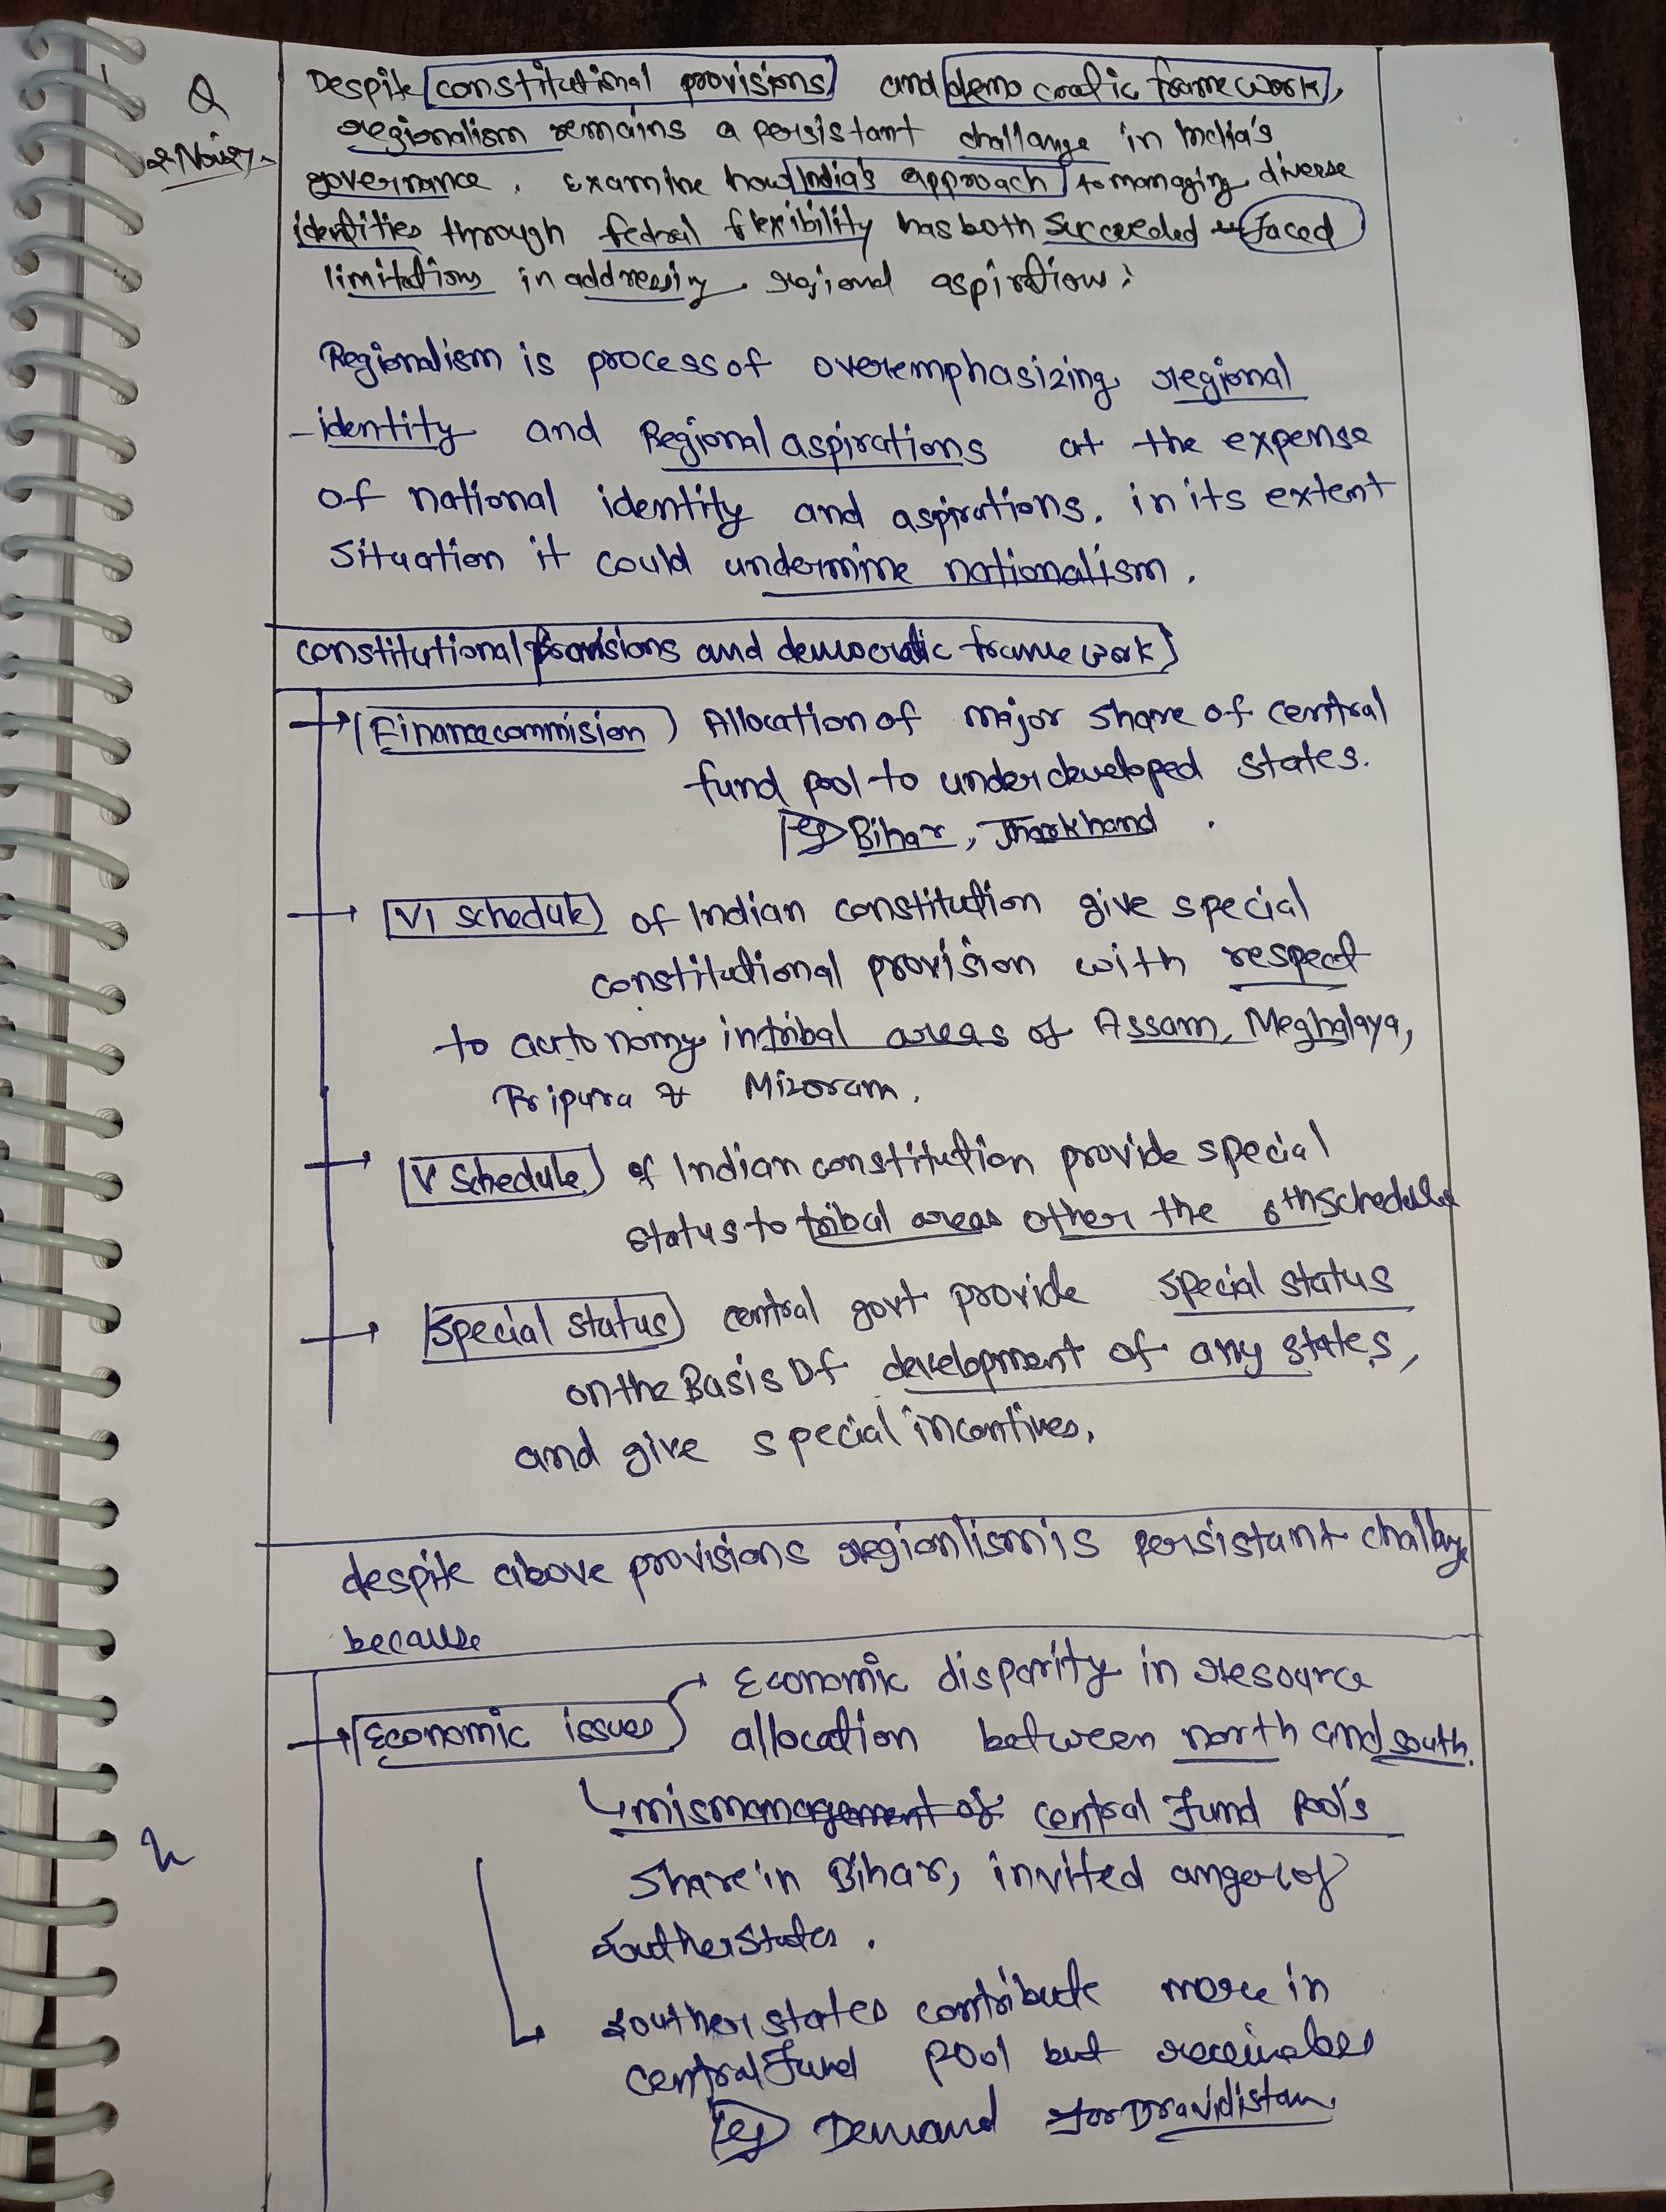 Q
Despite constitutional provisions and democratic framework,
regionalism remains a persistant challange in India's
governance. Examine how India's approach to managing diverse
identities through fedral flexibility has both succeeded faced
limitations in addressing regional aspirations.
Regionalism is process of overemphasizing regional
identity and Regional aspirations at the expense
of national identity and aspirations. in its extent
situation it could undermine nationalism.
constitutional provisions and democratic framework
Finance commision Allocation of major share of central
fund pool to underdeveloped states.
eg Bihar, Jharkhand.
VI schedule of Indian constitution give special
constitutional provision with respect
to autonomy in tribal areas of Assam, Meghalaya,
Tripura & Mizoram.
V schedule of Indian constitution provide special
status to tribal areas other the 6th schedule
special status central govt provide special status
on the Basis of development of any states,
and give special incentives.
despite above provisions regionlism is persistant challange
because
Economic disparity in resource
Economic issues allocation between north and south.
mismanagement of central Fund pool's
share in Bihar, invited anger of
souther states.
souther states contribute more in
central Fund pool but receive less
eg Demand for Dravidistan.